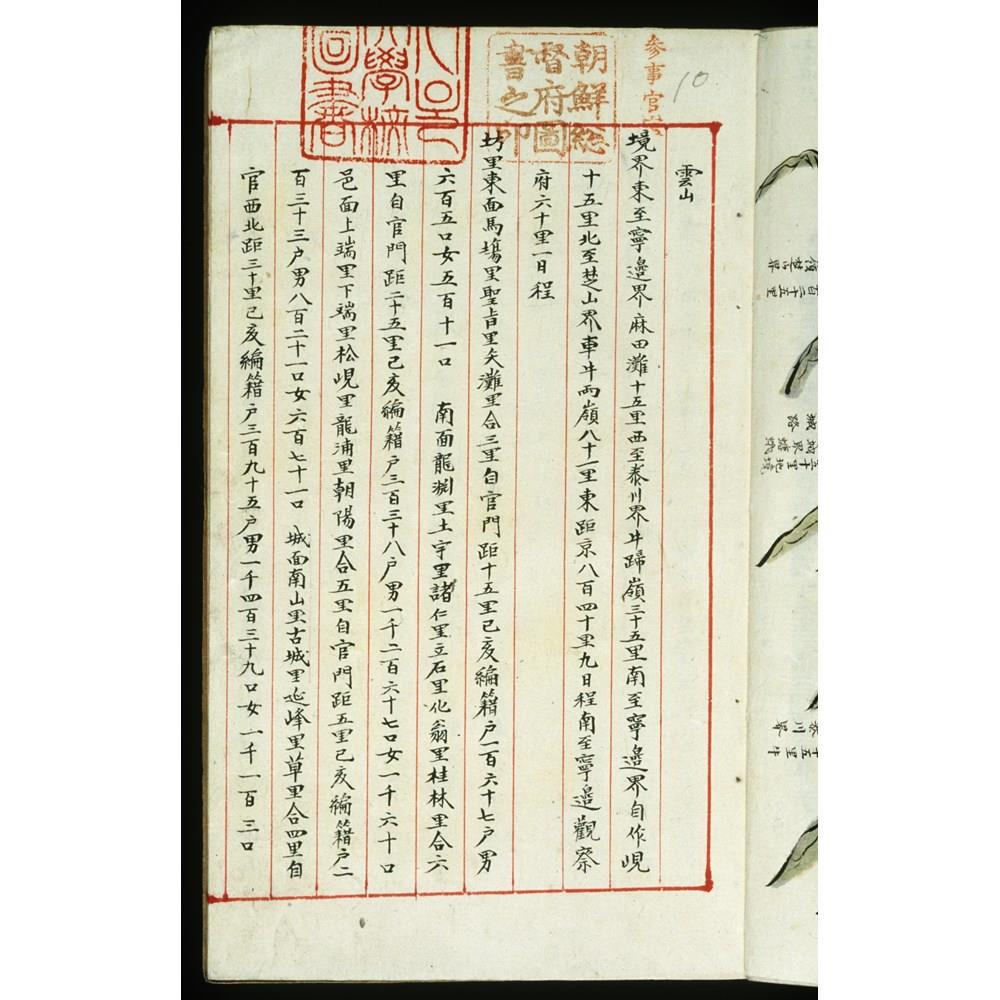 雲山
境界東至寧邊界麻田灘十五里西至泰川界牛蹄嶺三十五里南至寧邊界自作峴
十五里北至楚山界車牛兩嶺八十一里東距京八百四十里九日程南至寧邊觀察
府六十里一日程
坊里東面馬塲里聖旨里矢灘里合三里自官門距十五里己亥編籍戶一百六十七戶男
六百五口女五百十一口 南面龍淵里土宇里諸仁里立石里化翁里桂林里合六
里自官門距二十五里己亥編籍戶三百三十八戶男一千二百六十七口女一千六十口
邑面上端里下端里松峴里龍浦里朝陽里合五里自官門距五里己亥編籍戶二
百三十三戶男八百二十一口女六百七十一口 城面南山里古城里延峰里草里合四里自
官西北距三十里己亥編籍戶三百九十五戶男一千四百三十九口女一千一百三口
參事官
10
朝鮮總
督府圖
書之印
學校
圖書
十五里
泰川界